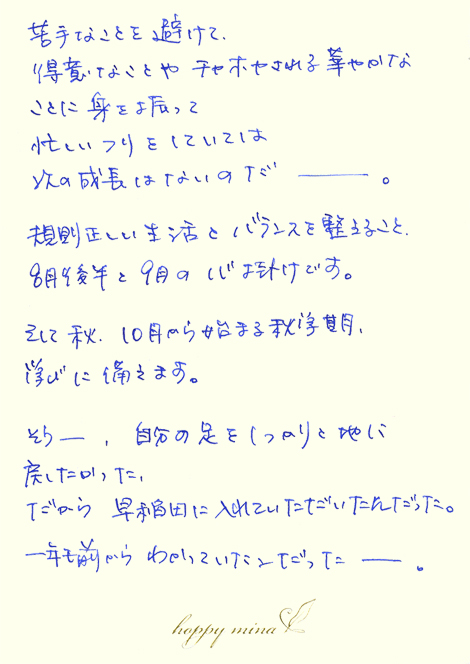 苦手なことを避けて、
得意なことや チヤホヤされる華やかな
ことに身を振って
忙しいフリをしていては
次の成長はないのだ ――。
規則正しい生活とバランスを整えること、
8月後半と9月の心掛けです。
そして秋、10月から始まる秋学期、
学びに備えます。
そう ―、自分の足をしっかりと地に
戻したかった、
だから 早稲田に入れていただいたんだった。
一年も前から わかっていたことだった ―。
happy mina